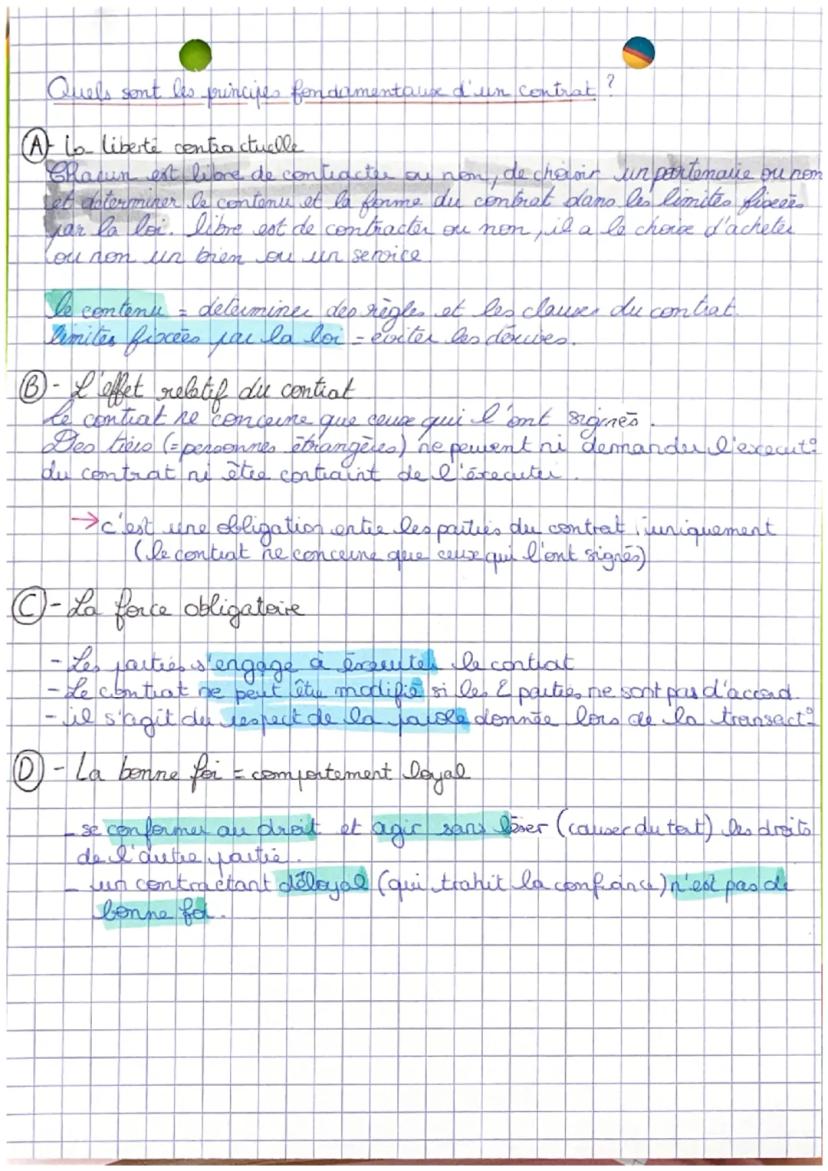 Quels sont les principes fondamentaux d'un contrat ?
A - la liberté contractuelle
Chacun est libre de contracter ou non, de choisir un partenaire ou non
et déterminer le contenu et la forme du contrat dans les limites fixées
par la loi. libre est de contracter ou non, il a le choix d'acheter
ou non un bien ou un service
le contenu = déterminer des règles et les clauses du contrat.
limites fixées par la loi = éviter les dérives.
B - L'effet relatif du contrat
Le contrat ne concerne que ceux qui l'ont signés.
Des tiers (= personnes étrangères) ne peuvent ni demander l'execut°
du contrat ni être contraint de l'éxecuter.
→ c'est une obligation entre les parties du contrat, uniquement
(le contrat ne concerne que ceux qui l'ont signés)
C - La force obligatoire
- Les parties s'engage à éxecuter le contrat
- Le contrat ne peut être modifié si les 2 parties ne sont pas d'accord.
- il s'agit du respect de la parole donnée lors de la transact°
D - La bonne foi = comportement loyal
- se conformer au droit et agir sans léser (causer du tort) les droits
de l'autre partie.
- un contractant déloyal (qui trahit la confiance) n'est pas de
bonne foi.